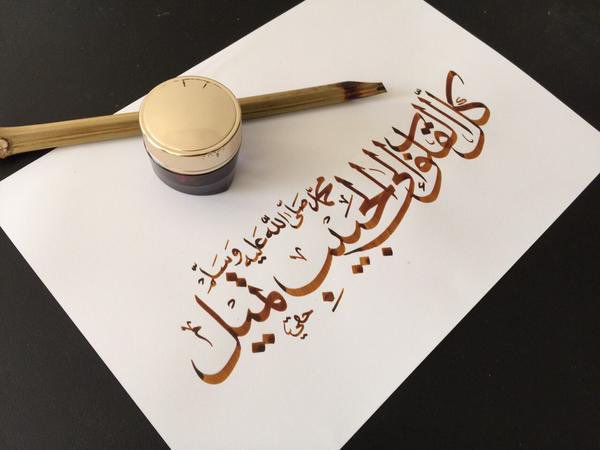 كل القلوب إلى الحبيب تميل
محمد صلى الله عليه وسلم
حقي